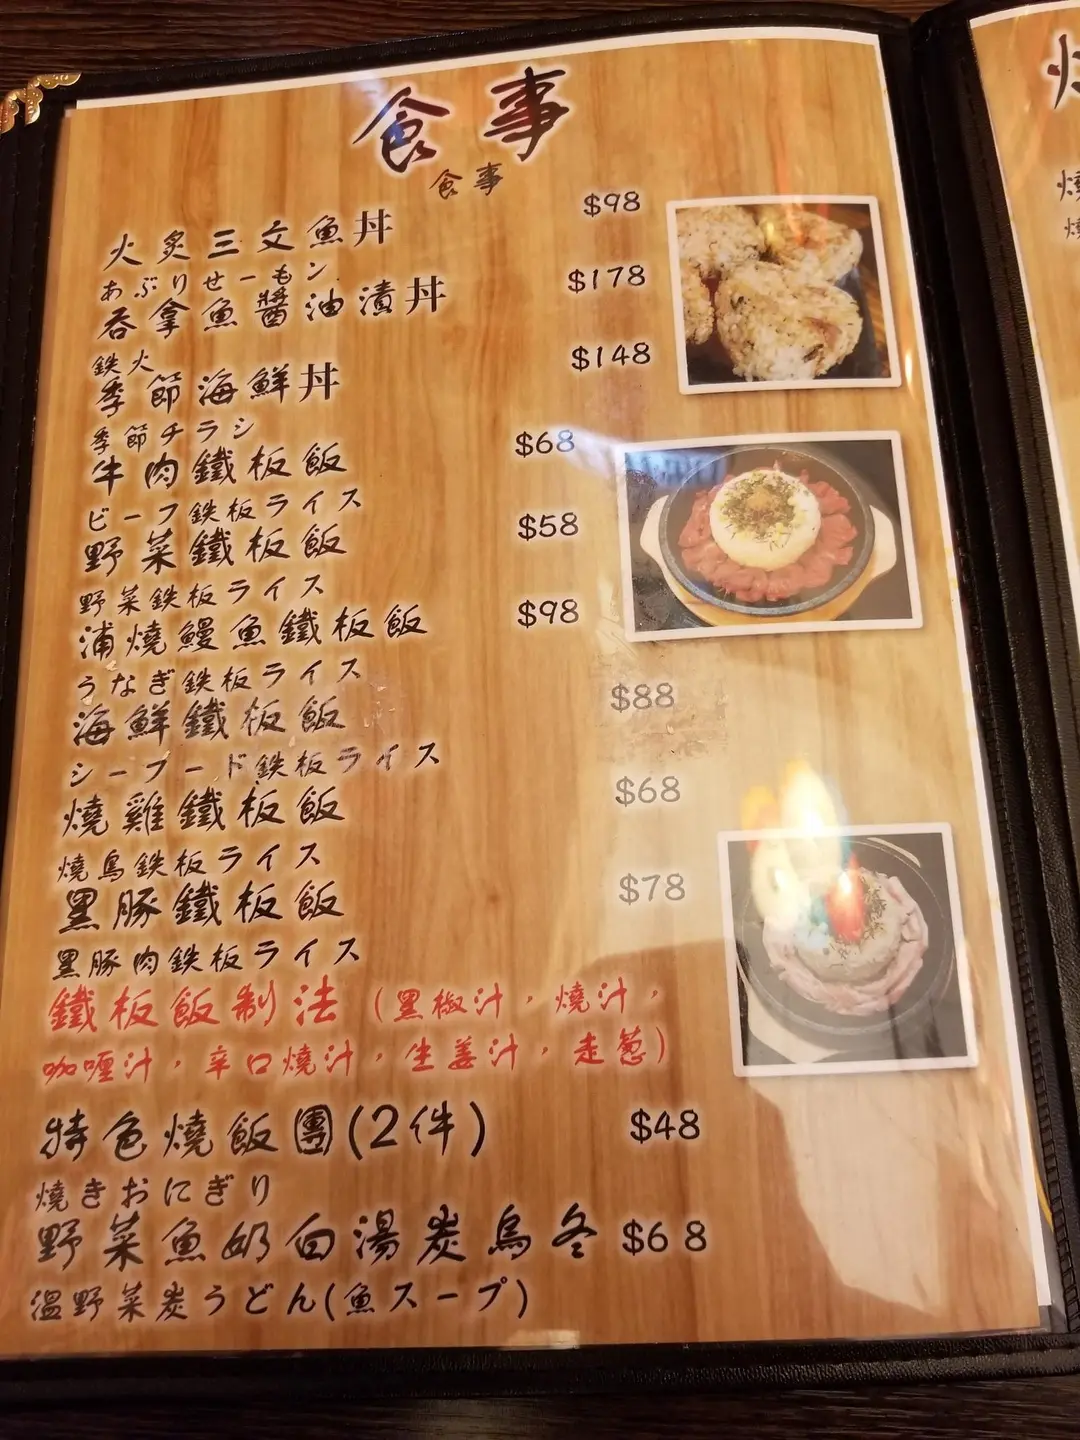 食事
食事
火炙三文魚丼 $98
あぶりせーもン
呑拿魚醬油漬丼 $178
鉄火
季節海鮮丼 $148
季節チラシ
牛肉鐵板飯 $68
ビーフ鉄板ライス
野菜鐵板飯 $58
野菜鉄板ライス
浦燒鰻魚鐵板飯 $98
うなぎ鉄板ライス
海鮮鐵板飯 $88
シーフード鉄板ライス
燒雞鐵板飯 $68
燒鳥鉄板ライス
黑豚鐵板飯 $78
黑豚肉鉄板ライス
鐵板飯制法（黑椒汁，燒汁，
咖喱汁，辛口燒汁，生姜汁，走葱）
特色燒飯團(2件) $48
燒きおにぎり
野菜魚奶白湯炭烏冬 $68
温野菜炭うどん(魚スープ)